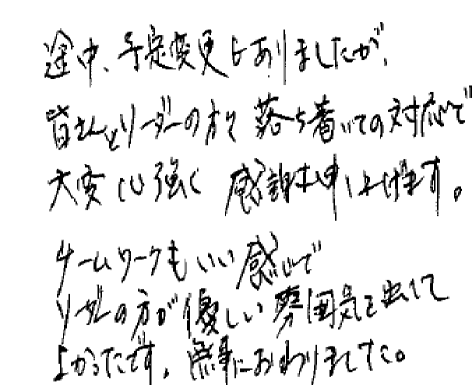 途中、予定変更もありましたが、
皆さんとリーダーの方で落ち着いての対応で
大変心強く感謝申し上げます。
チームワークもいい感じで
リーダーの方が優しい雰囲気を出してて
よかったです。無事におわりました。